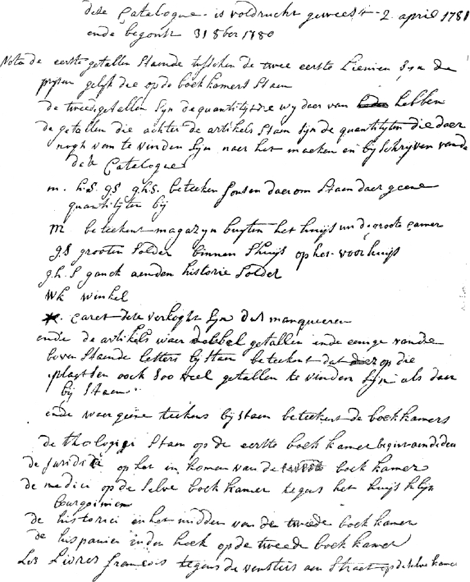 dese Catalogue is voldruckt geweest 2 april 1781
ende begonst 31 8ber 1780
Nota de eerste getallen staende tusschen de twee eerste Linien syn de
prysen gelyk die op de boekkamers staen
de tweede getallen syn de quantityten wy daer van hebben
de getallen die achter de artikels staen syn de quantityten die daer
nogh van te vinden syn naer het maeken en by schryven van de
dese Catalogue
m. h.S. gS. ghS. beteeken sonsen daerom staen daer geene
quantityten by
M beteekent magazyn buyten het huys in d groote camer
gS grooten Solder binnen S huys op het voorhuys
g.h.S ganck aenden historie Solder
Wk winkel
caret dese verkoght syn dus manqueren
ende de artikels waer dobbel getallen ende eenige vande
boven staende letters by staen beteekent dat op die
plaetsen oock soo veel getallen te vinden syn als daer
by staen.
ende waer geene teekens by staen beteekent de boekkamers
de thologigi staen op de eerste boek kamer
de juridici op het in komen van de boek kamer
de medici op de selve boek kamer tegens het huys
de historici in het midden van de tweede boek kamer
de hispanien in den hoek op de tweede boek kamer
Les Livres françois tegens de vensters aen Straet op de selve kamer